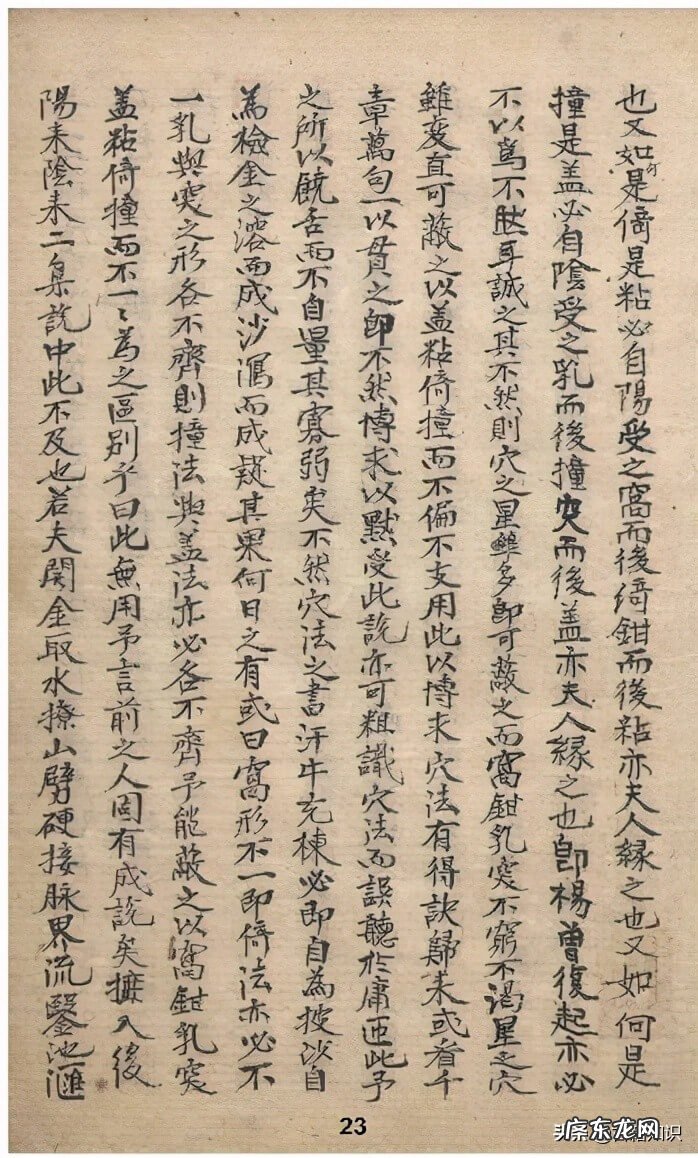 也又如何是倚是粘必自陽受之窩而後綺鉗而後粘亦夫人緣之也又如何是
撞是盖必自陰受之乳而後撞突而後盖亦夫人緣之也卽楊曾復起亦必
不以為不肰耳誠之其不然則穴之星雖多卽可蔽之而窩鉗乳突不窮不渴星之穴
雖变直可蔽之以盖粘倚撞而不偏不支用此以博求穴法有得訣歸来或看千
章萬句一以貫之卽不然博求以默受此說亦可粗識穴法而誤聽於庸匝此予
之所以饒舌而不自量其寡弱矣不然穴法之書汗牛充棟必即自為披沙自
為檢金之溶而成沙瀉而成疑其果何日之有或曰窩形不一即倚法亦必不
一乳與突之形各不齊則撞法與盖法亦必各不齊予能蔽之以窩鉗乳突
盖粘倚撞而不一〻為之區别予曰此無用予言前之人固有成說矣摭入後
陽来陰来二集說中此不及也若夫開金取水撩山劈硬接脉界流鑿池匯
23
头条
庸东龙网
知识